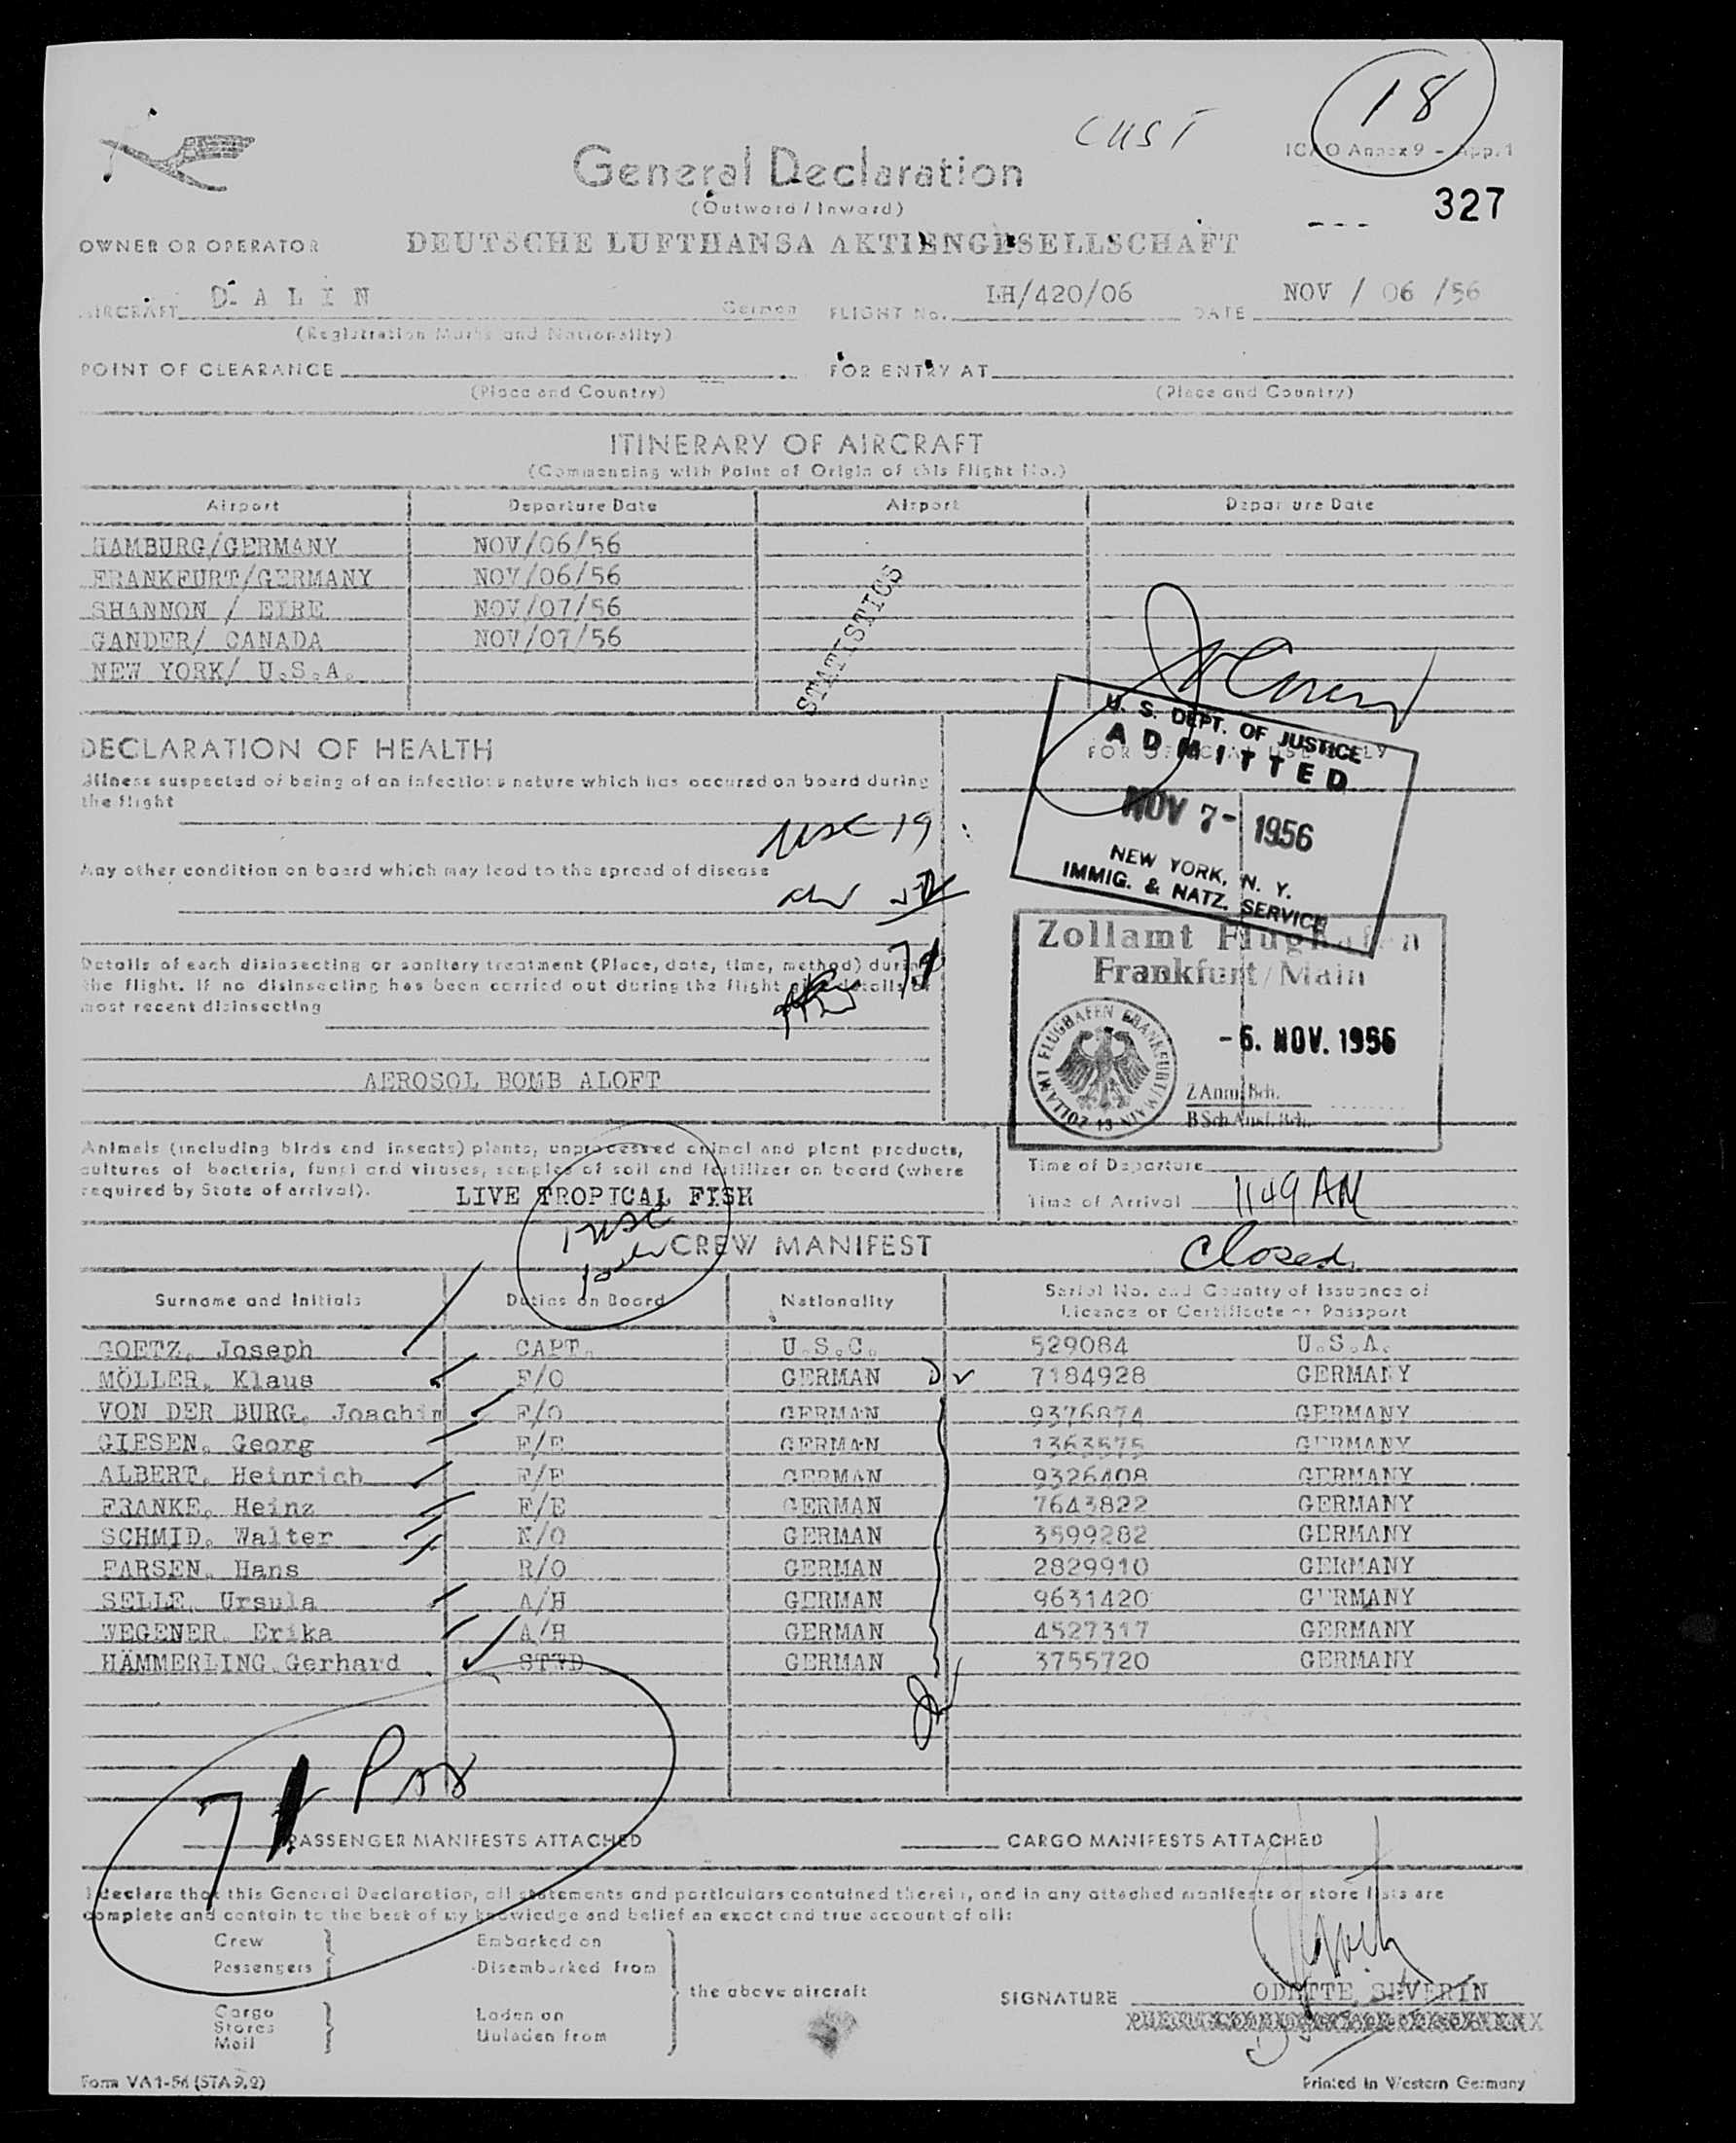 18
CUST
ICAO Annex 9 - App. 1
General Declaration
(Outward / Inward)
327
OWNER OR OPERATOR DEUTSCHE LUFTHANSA AKTIENGESELLSCHAFT
AIRCRAFT D- A L I N German FLIGHT No. LH/420/06 DATE NOV / 06 /56
(Registration Marks and Nationality)
POINT OF CLEARANCE FOR ENTRY AT
(Place and Country) (Place and Country)
ITINERARY OF AIRCRAFT
(Commencing with Point of Origin of this Flight No.)
Airport Departure Date Airport Departure Date
HAMBURG/GERMANY NOV/06/56
FRANKFURT/GERMANY NOV/06/56
SHANNON / EIRE NOV/07/56
GANDER/ CANADA NOV/07/56
NEW YORK/ U.S.A.
STATISTICS
U. S. DEPT. OF JUSTICE
ADMITTED
NOV 7 - 1956
NEW YORK, N. Y.
IMMIG. & NATZ. SERVICE
FOR OFFICIAL USE ONLY
DECLARATION OF HEALTH
Illness suspected of being of an infectious nature which has occured on board during
the flight
USC 19
Any other condition on board which may lead to the spread of disease
Details of each disinsecting or sanitary treatment (Place, date, time, method) during
the flight. If no disinsecting has been carried out during the flight give details of
most recent disinsecting
71
AEROSOL BOMB ALOFT
Zollamt Flughafen
Frankfurt/Main
- 6. NOV. 1956
ZOLLAMT FLUGHAFEN FRANKFURT/MAIN
13
Animals (including birds and insects) plants, unprocessed animal and plant products,
cultures of bacteria, fungi and viruses, samples of soil and fertilizer on board (where
required by State of arrival). LIVE TROPICAL FISH
Time of Departure
Time of Arrival 1149 AM
1 USC
Closed
CREW MANIFEST
Surname and Initials Duties on Board Nationality Serial No. and Country of Issuance of
Licence or Certificate or Passport
GOETZ, Joseph CAPT. U.S.C. 529084 U.S.A.
MÖLLER, Klaus F/O GERMAN 7184928 GERMANY
VON DER BURG, Joachim F/O GERMAN 9376874 GERMANY
GIESEN, Georg F/E GERMAN 1363575 GERMANY
ALBERT, Heinrich F/E GERMAN 9326408 GERMANY
FRANKE, Heinz F/E GERMAN 7643822 GERMANY
SCHMID, Walter N/O GERMAN 3599282 GERMANY
FARSEN, Hans R/O GERMAN 2829910 GERMANY
SELLE, Ursula A/H GERMAN 9631420 GERMANY
WEGENER, Erika A/H GERMAN 4527317 GERMANY
HÄMMERLING, Gerhard STWD GERMAN 3755720 GERMANY
PASSENGER MANIFESTS ATTACHED CARGO MANIFESTS ATTACHED
I declare that this General Declaration, all statements and particulars contained therein, and in any attached manifests or store lists are
complete and contain to the best of my knowledge and belief an exact and true account of all:
Crew Embarked on
Passengers Disembarked from
the above aircraft
Cargo Laden on
Stores
Mail Unladen from
SIGNATURE ODETTE SEVERIN
Form VA 1-56 (STA 9.2) Printed in Western Germany